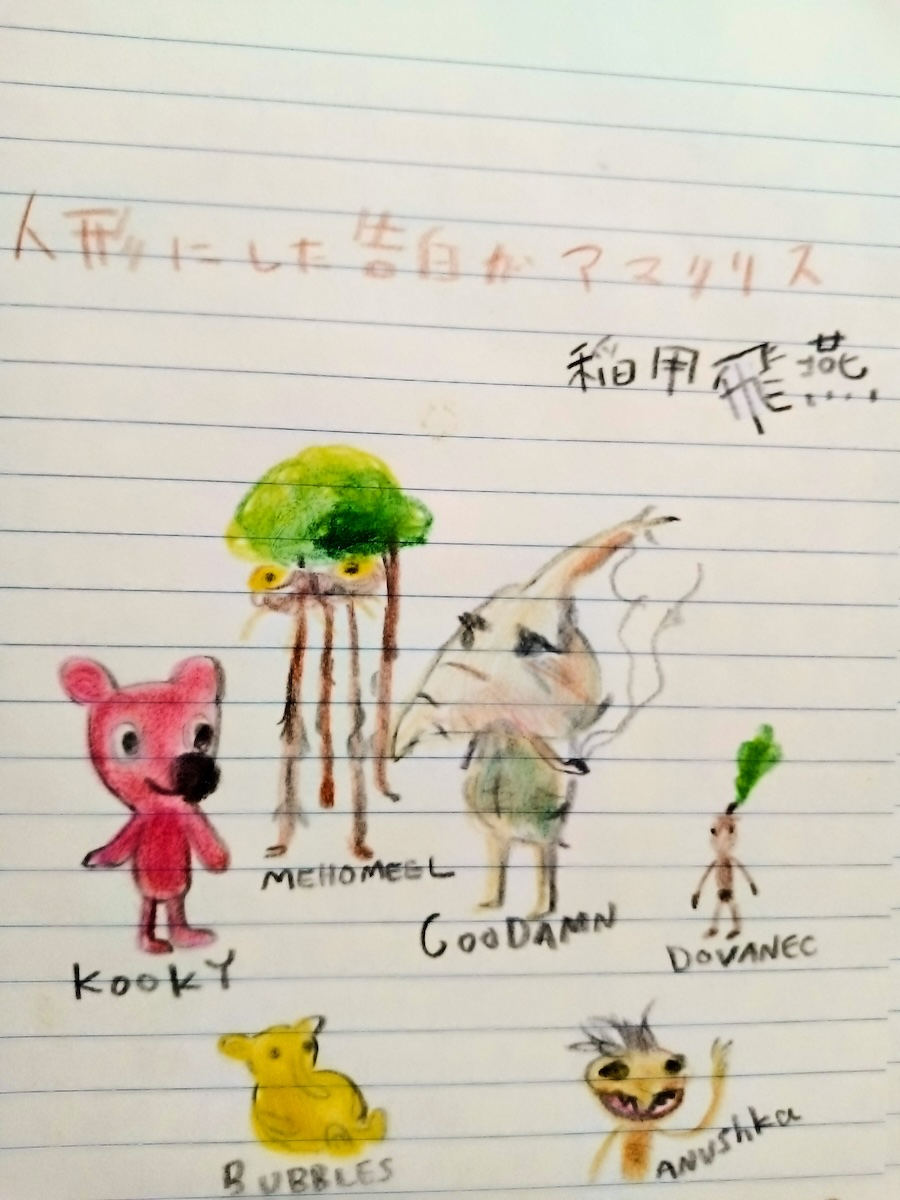 人形にした告白がアマリリス
稲用飛燕
MEHOMEEL
GOODAMN
DOVANEC
KOOKY
BUBBLES
ANUSHKA